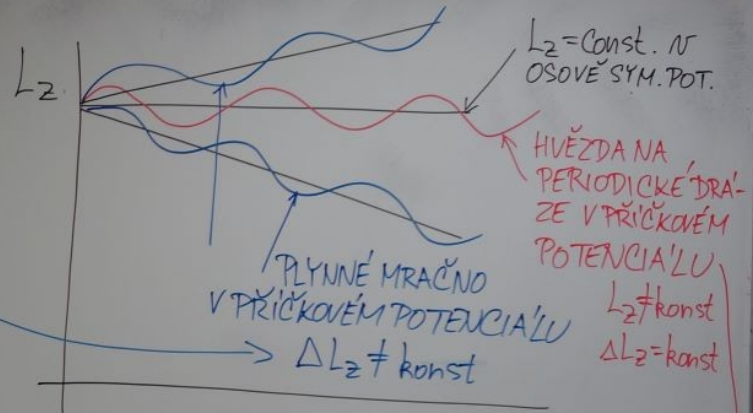 Lz
Lz = CONST. V
OSOVĚ SYM. POT.
HVĚZDA NA
PERIODICKÉ DRÁ-
ZE V PŘÍČKOVÉM
POTENCIÁLU
Lz ≠ konst
ΔLz = konst
PLYNNÉ MRAČNO
V PŘÍČKOVÉM POTENCIÁLU
ΔLz ≠ konst